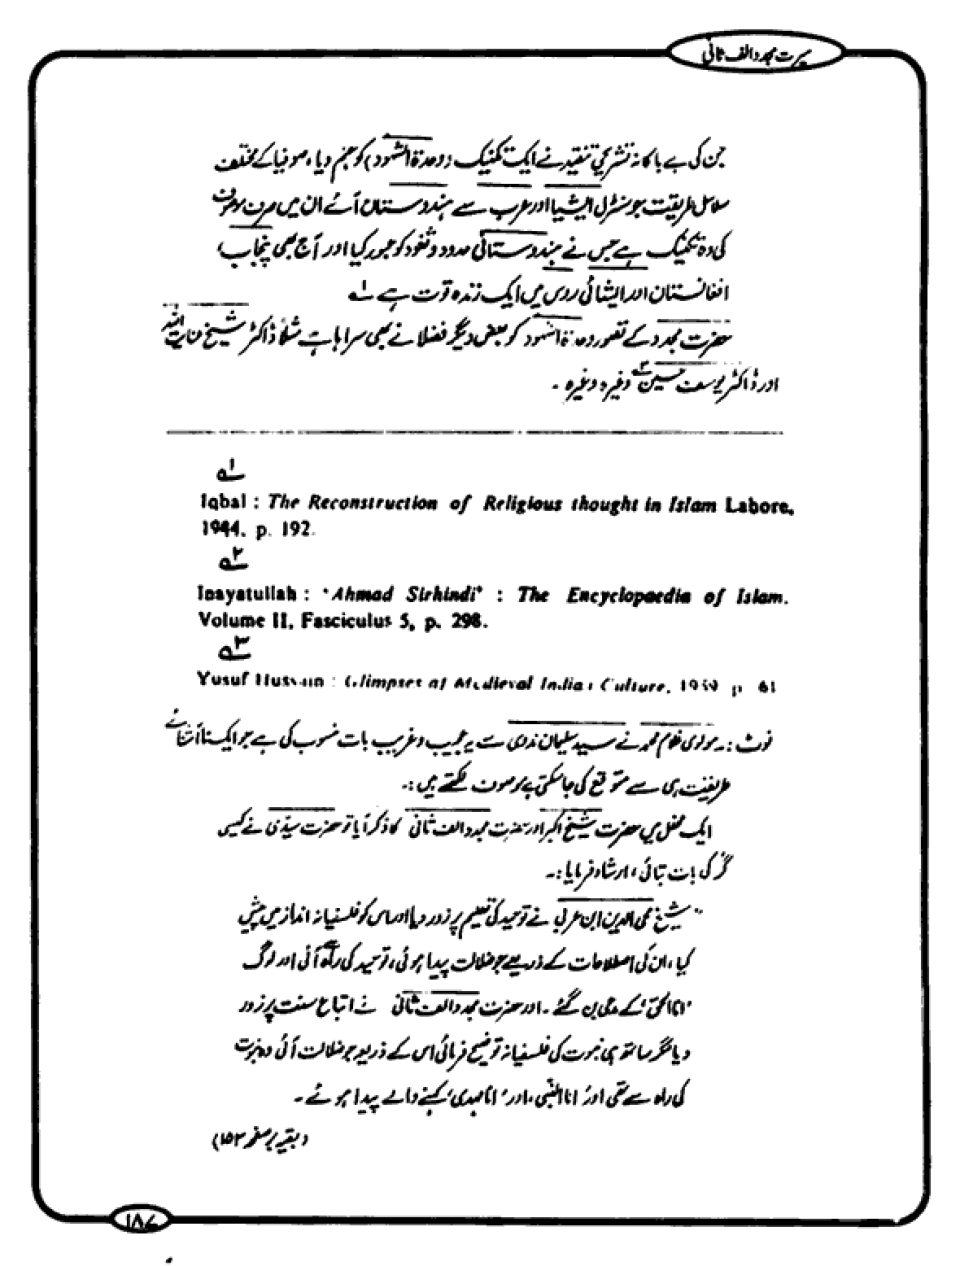 سیرت مجدد الف ثانی
جن کی بے باکانہ تشریحی تنقید نے ایک تکنیک (وحدۃ الشہود) کو جنم دیا، صوفیا کے مختلف
سلاسل طریقت جو سنٹرل ایشیا اور عرب سے ہندوستان آئے ان میں صرف
کی وہ تکنیک ہے جس نے ہندوستانی حدود و ثغور کو عبور کیا اور آج بھی پنجاب،
افغانستان اور ایشیائی روس میں ایک زندہ قوت ہے ۱؎
حضرت مجدد کے تصور وحدۃ الشہود کو بعض دیگر فضلا نے بھی سراہا ہے مثلاً ڈاکٹر شیخ عنایت اللہ
اور ڈاکٹر یوسف حسین ۳؎ وغیرہ وغیرہ ۔
۱؎
Iqbal : The Reconstruction of Religious thought in Islam Lahore,
1944, p. 192.
۲؎
Inayatullah : 'Ahmad Sirhindi' : The Encyclopaedia of Islam.
Volume II, Fasciculus 5, p. 298.
۳؎
Yusuf Hussain : Glimpses of Medieval Indian Culture, 1959 p 61
نوٹ :۔ مولوی غلام محمد نے سید سلیمان ندوی سے یہ عجیب و غریب بات منسوب کی ہے جو ایک ناآشنائے
طریقت ہی سے متوقع کی جا سکتی ہے موصوف لکھتے ہیں :۔
ایک محفل میں حضرت شیخ اکبر اور حضرت مجدد الف ثانی کا ذکر آیا تو حضرت سیدی نے کیسی
گُر کی بات بتائی، ارشاد فرمایا :۔
"شیخ محی الدین ابن عربی نے توحید کی تعلیم پر زور دیا اور اس کو فلسفیانہ انداز میں پیش
کیا، ان کی اصطلاحات کے ذریعے جو ضلالت پیدا ہوئی، توحید کی راہ سے آئی اور لوگ
'انا الحق' کے مدعی بن گئے ۔ اور حضرت مجدد الف ثانی نے اتباع سنت پر زور
دیا مگر ساتھ ہی نبوت کی فلسفیانہ توضیح فرمائی اس کے ذریعہ جو ضلالت آئی وہ نبوت
کی راہ سے تھی اور 'انا النبی' اور 'انا مہدی' کہنے والے پیدا ہوئے ۔
(بقیہ بر صفحہ ۱۵۲)
۱۸۷